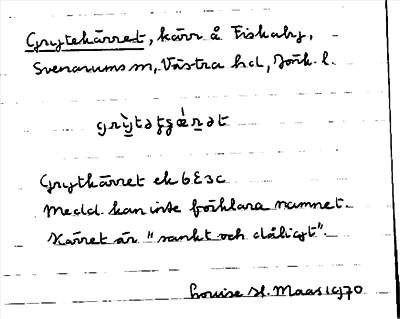 Grytekärret, kärr å Fiskaby,
Svenarums sn, Västra hd, Jönk. l.
Grytkärret ek 6E3c
Medd. kan inte förklara namnet.
Kärret är "sankt och dåligt".
Louise H. Maas 1970